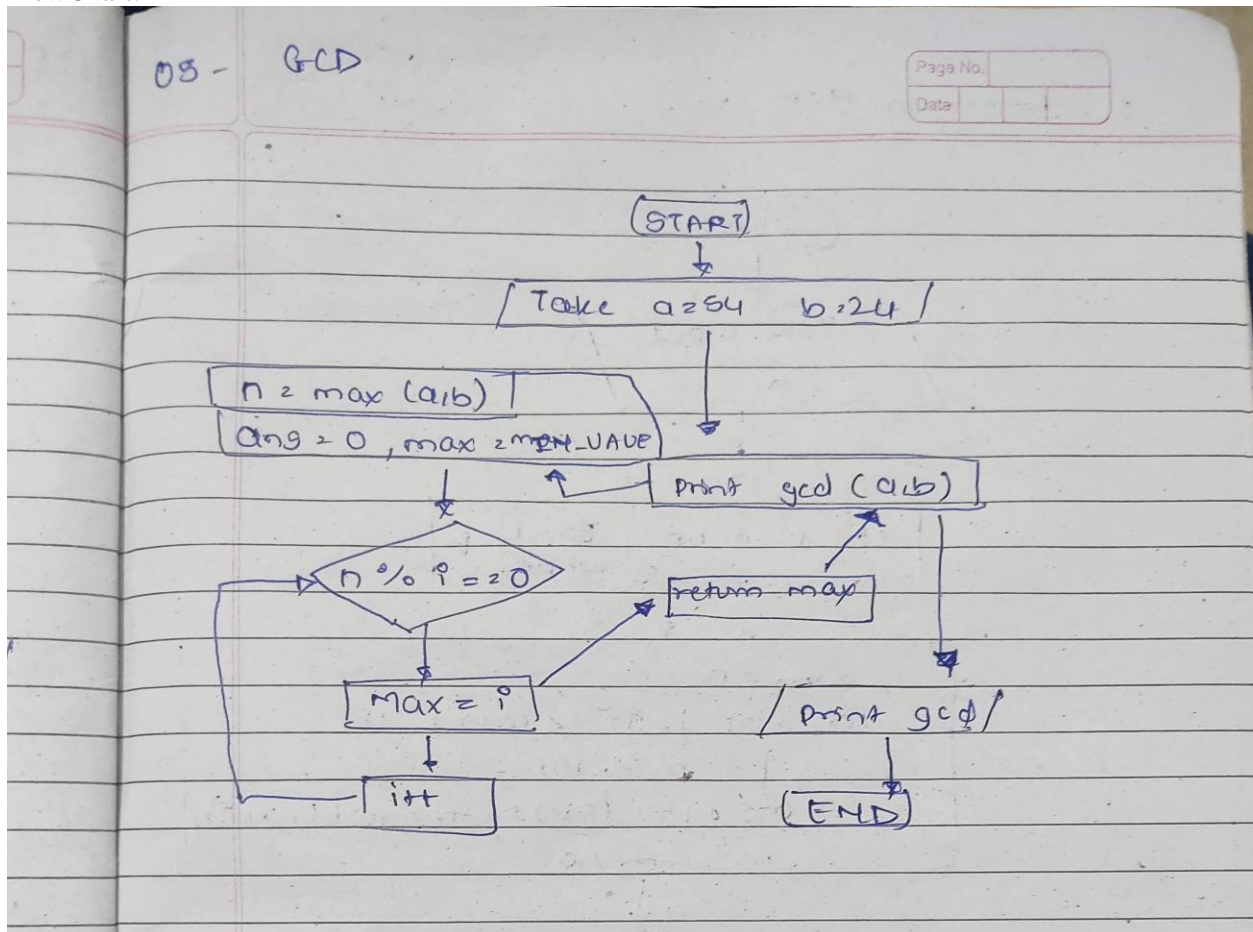 08 - GCD
Page No.
Date
START
Take a=54 b=24
n = max (a,b)
ans = 0, max = MIN_VAUE
print gcd (a,b)
n % i == 0
return max
Max = i
print gcd
i++
END